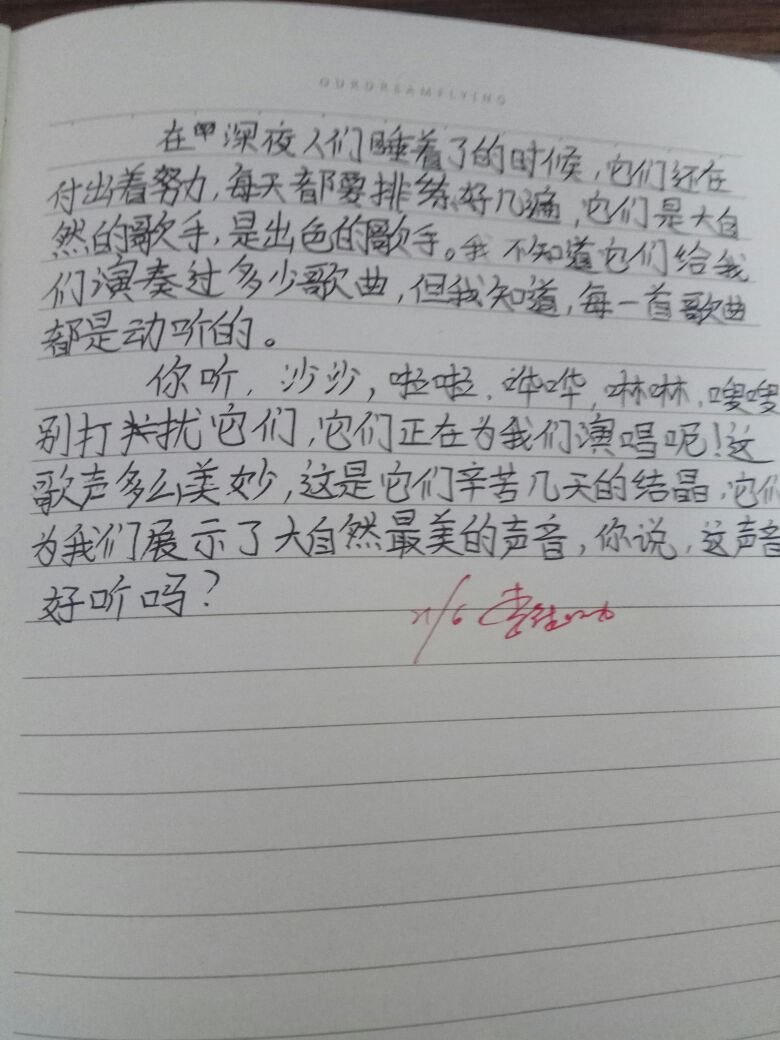 OURDREAMFLYING
在深夜人们睡着了的时候,它们还在
付出着努力,每天都要排练好几遍,它们是大自
然的歌手,是出色的歌手。我不知道它们给我
们演奏过多少歌曲,但我知道,每一首歌曲
都是动听的。
你听,沙沙,啦啦,哗哗,啉啉,嗖嗖
别打扰它们,它们正在为我们演唱呢!这
歌声多么美妙,这是它们辛苦几天的结晶,它们
为我们展示了大自然最美的声音,你说,这声音
好听吗?